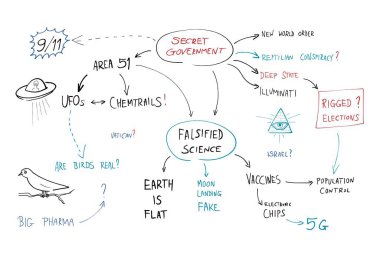 9/11
SECRET
GOVERNMENT
NEW WORLD ORDER
REPTILIAN CONSPIRACY?
DEEP STATE
ILLUMINATI
AREA 51
UFOs
CHEMTRAILS!
RIGGED?
ELECTIONS
VATICAN?
FALSIFIED
SCIENCE
ISRAEL?
ARE BIRDS REAL?
?
BIG PHARMA
EARTH
IS
FLAT
MOON
LANDING
FAKE
VACCINES
POPULATION
CONTROL
ELECTRONIC
CHIPS
5G